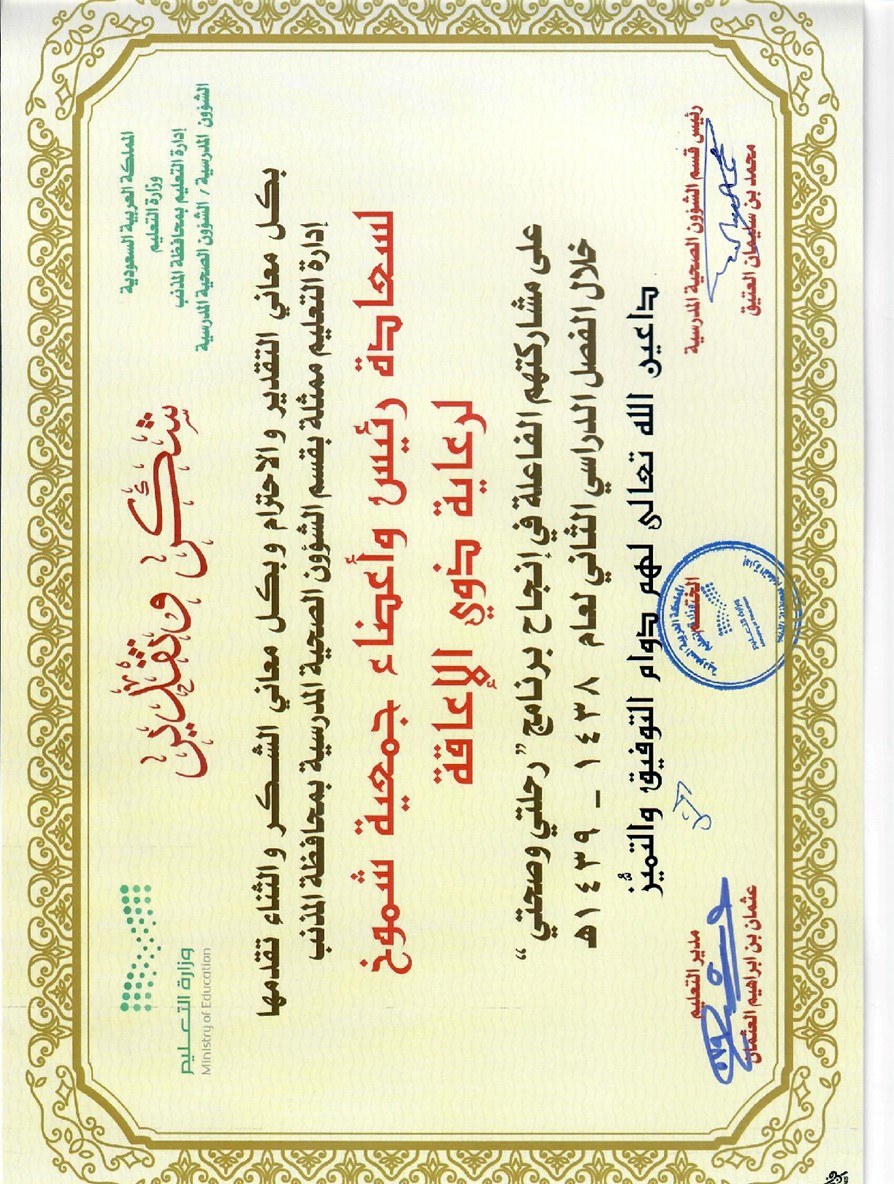 المملكة العربية السعودية
وزارة التعليم
إدارة التعليم بمحافظة المذنب
الشؤون المدرسية / الشؤون الصحية المدرسية
وزارة التعليم
Ministry of Education
شكر وتقدير
بكل معاني التقدير والاحترام وبكل معاني الشكر والثناء تقدمها
إدارة التعليم ممثلة بقسم الشؤون الصحية المدرسية بمحافظة المذنب
لسعادة رئيس وأعضاء جمعية شموخ
لرعاية ذوي الإعاقة
على مشاركتهم الفاعلة في إنجاح برنامج "رحلتي وصحتي"
خلال الفصل الدراسي الثاني لعام ١٤٣٨ - ١٤٣٩هـ
داعين الله تعالى لهم دوام التوفيق والتميُّز
رئيس قسم الشؤون الصحية المدرسية
محمد بن سليمان العتيق
الختم
المملكة العربية السعودية
مدير التعليم
عثمان بن ابراهيم العثمان